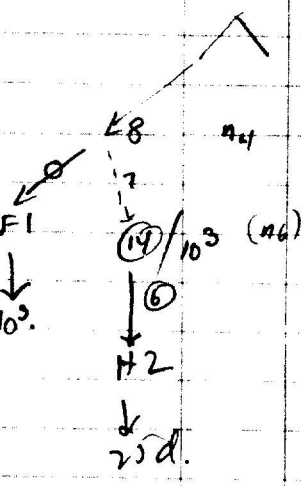 8 n4
?
F1 14 / 10³ (n6)
6
10³.
H2
25d.